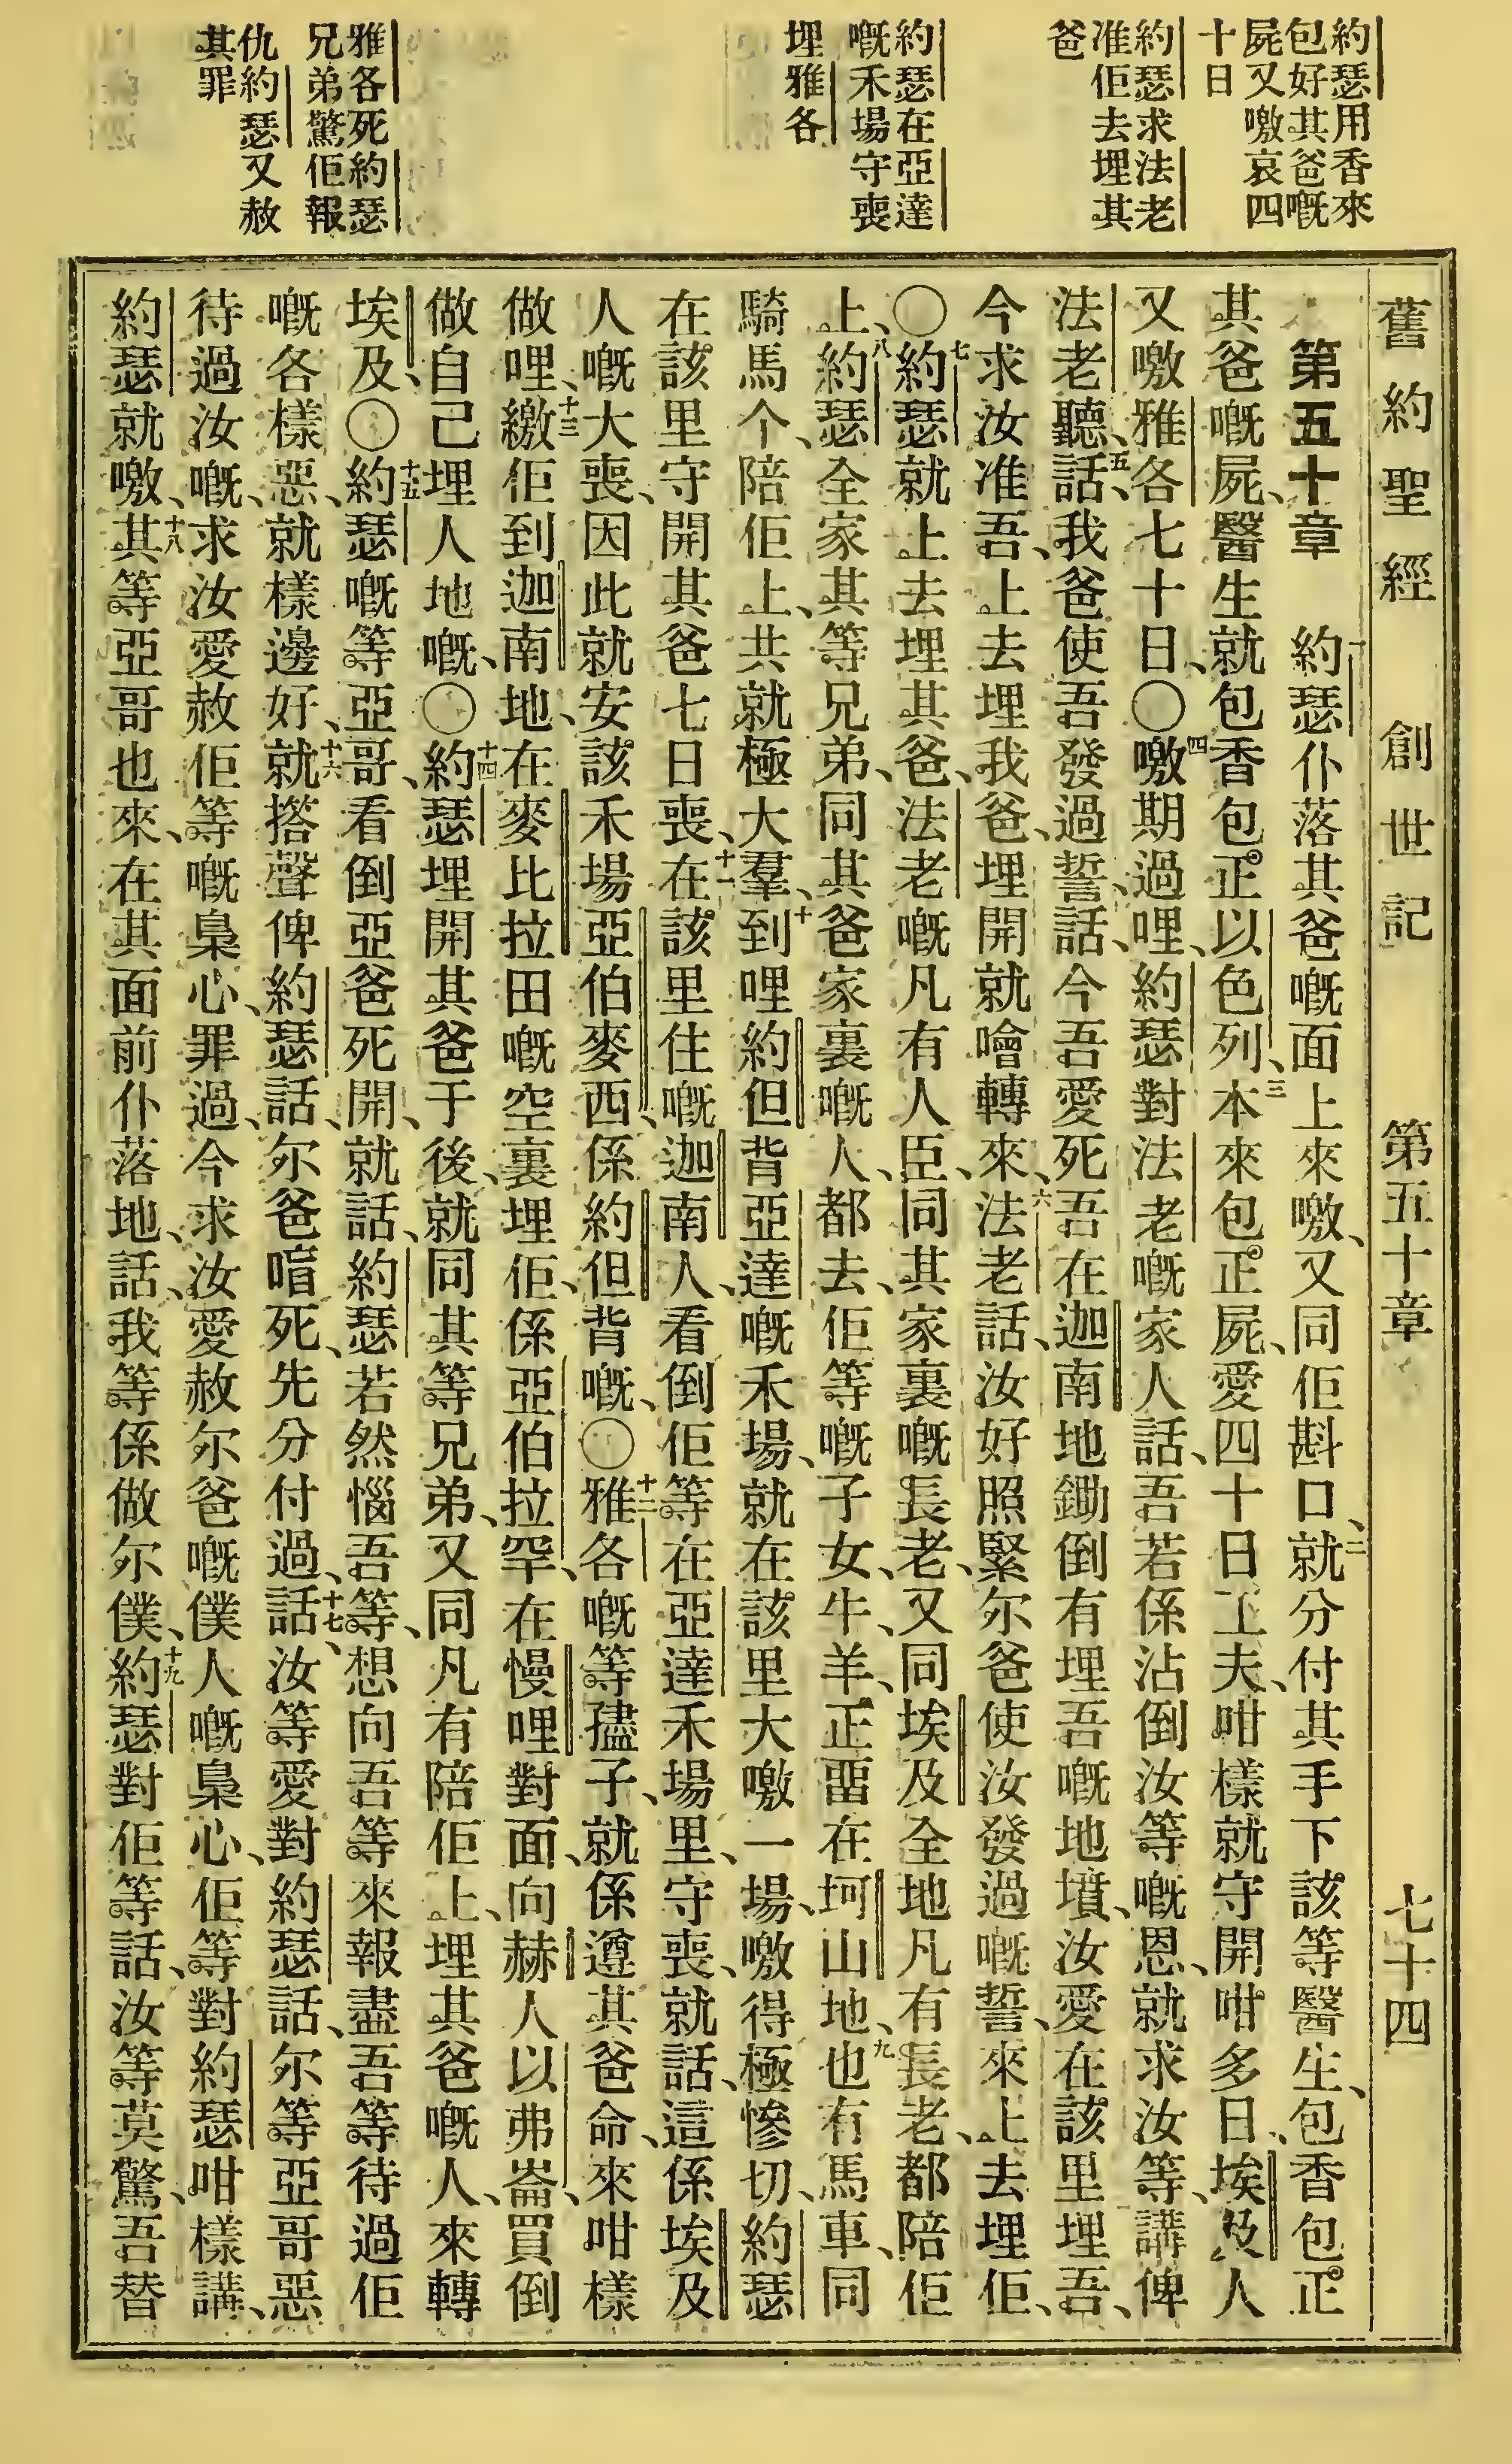 約瑟用香來
包好其爸嘅
屍又噭哀四
十日
約瑟求法老
准佢去埋其
爸
約瑟在亞達
嘅禾場守喪
埋雅各
雅各死約瑟
兄弟驚佢報
仇約瑟又赦
其罪
舊約聖經 創世記 第五十章 七十四
第五十章 一約瑟仆落其爸嘅面上來噭、又同佢斟口、二就分付其手下該等醫生、包香包正
其爸嘅屍、醫生就包香包正以色列、三本來包正屍、愛四十日工夫、咁樣就守開咁多日、埃及人
又噭雅各七十日、〇四噭期過哩、約瑟對法老嘅家人話、吾若係沾倒汝等嘅恩、就求汝等、講俾
法老聽、五話、我爸使吾發過誓、話、今吾愛死、吾在迦南地鋤倒有埋吾嘅地墳、汝愛在該里埋吾、
今求汝准吾、上去埋我爸、埋開就噲轉來、六法老話、汝好照緊尔爸使汝發過嘅誓、來上去埋佢、
〇七約瑟就上去埋其爸、法老嘅凡有人臣、同其家裏嘅長老、又同埃及全地凡有長老、都陪佢
上、八約瑟全家其等兄弟、同其爸家裏嘅人、都去、佢等嘅子女、牛、羊、正畱在坷山地、九也有馬車、同
騎馬个、陪佢上、共就極大羣、十到哩約但背亞達嘅禾場、就在該里大噭一場、噭得極慘切、約瑟
在該里守開其爸七日喪、十一在該里住嘅迦南人、看倒佢等在亞達禾場里、守喪、就話、這係埃及
人嘅大喪、因此就安該禾場亞伯麥西、係約但背嘅、〇十二雅各嘅等孻子、就係遵其爸命、來咁樣
做哩、十三繳佢到迦南地、在麥比拉田嘅空裏埋佢、係亞伯拉罕、在慢哩對面、向赫人以弗崙、買倒
做自己埋人地嘅、〇十四約瑟埋開其爸于後、就同其等兄弟、又同凡有陪佢上、埋其爸嘅人、來轉
埃及、〇十五約瑟嘅等亞哥、看倒亞爸死開、就話、約瑟若然惱吾等、想向吾等來報盡吾等待過佢
嘅各樣惡、就樣邊好、十六就撘聲俾約瑟話、尔爸喑死、先分付過、十七話、汝等愛對約瑟話、尔等亞哥惡
待過汝嘅、求汝愛赦佢等嘅梟心、罪過、今求汝愛赦尔爸嘅僕人嘅梟心、佢等對約瑟咁樣講、
約瑟就噭、十八其等亞哥也來、在其面前仆落地、話、我等係做尔僕、十九約瑟對佢等話、汝等莫驚、吾替